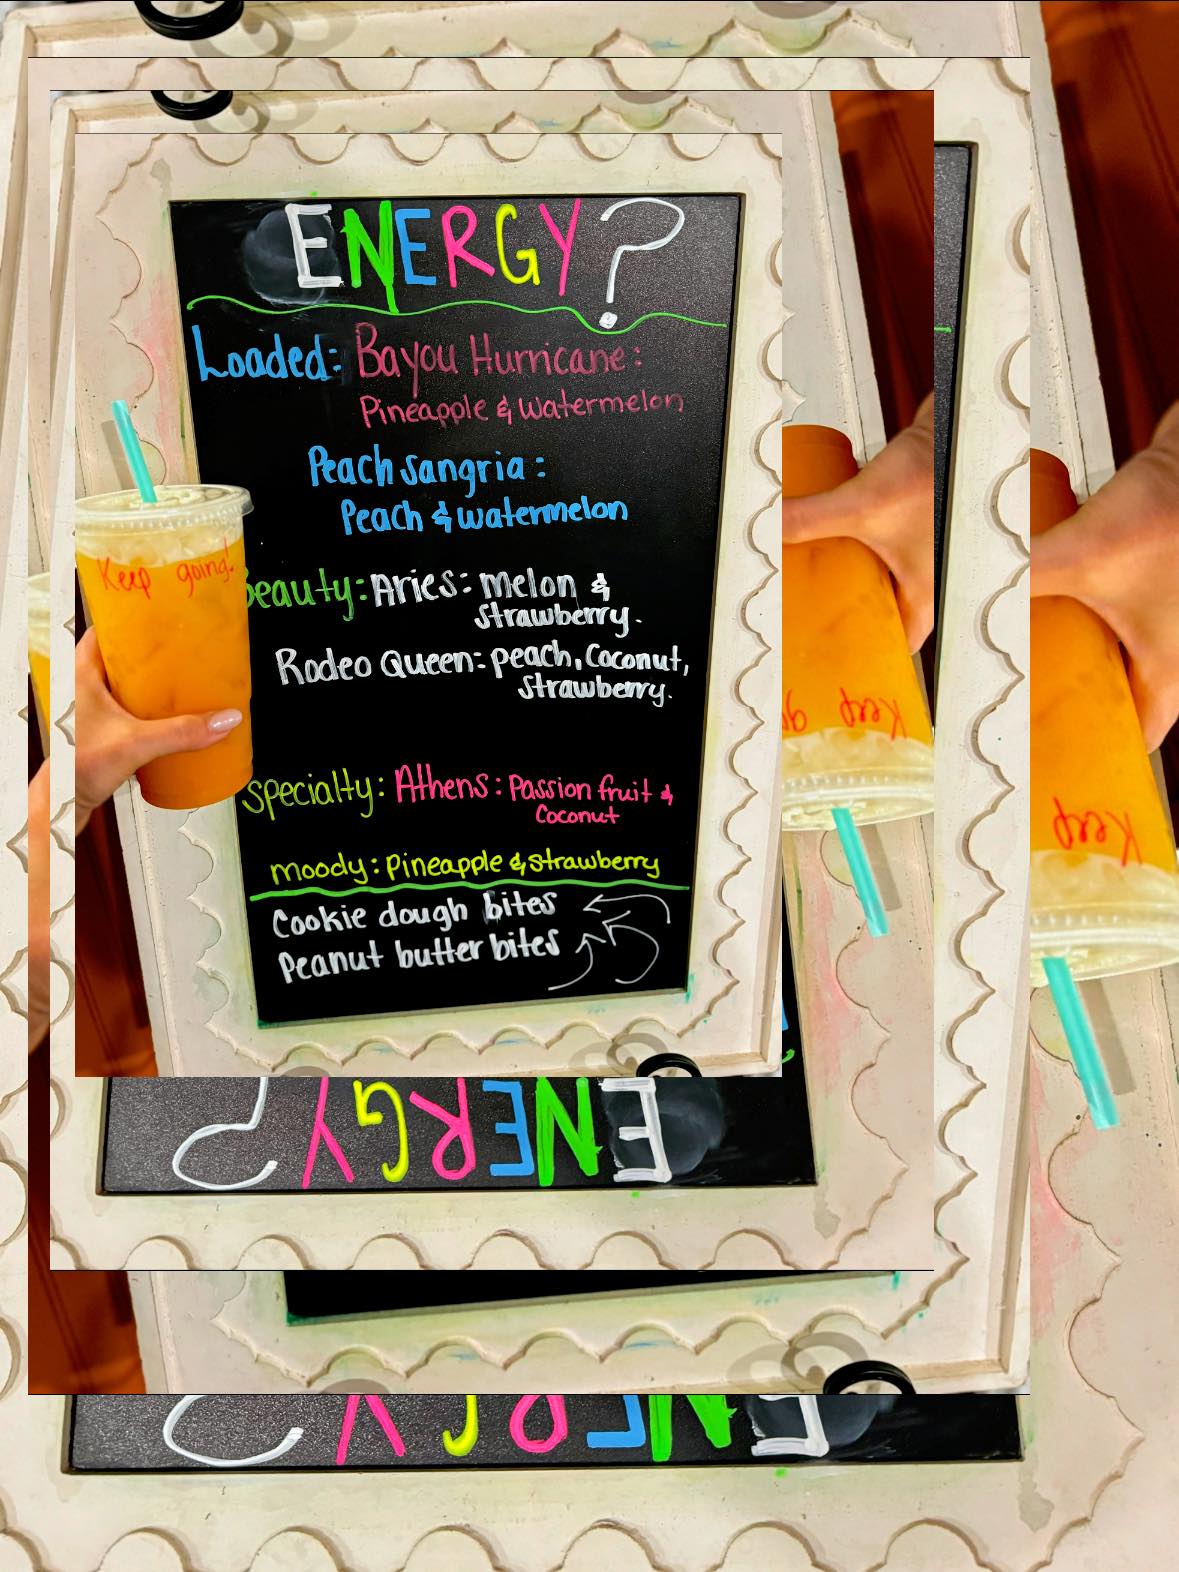 ENERGY?
Loaded: Bayou Hurricane:
Pineapple & Watermelon
Peach Sangria:
Peach & watermelon
Keep going!
Beauty: Aries: Melon &
Strawberry.
Rodeo Queen: peach, Coconut,
Strawberry.
Specialty: Athens: Passion fruit &
Coconut
moody: Pineapple & Strawberry
Cookie dough bites
Peanut butter bites
Keep go
Keep
ENERGY?
ENERGY?